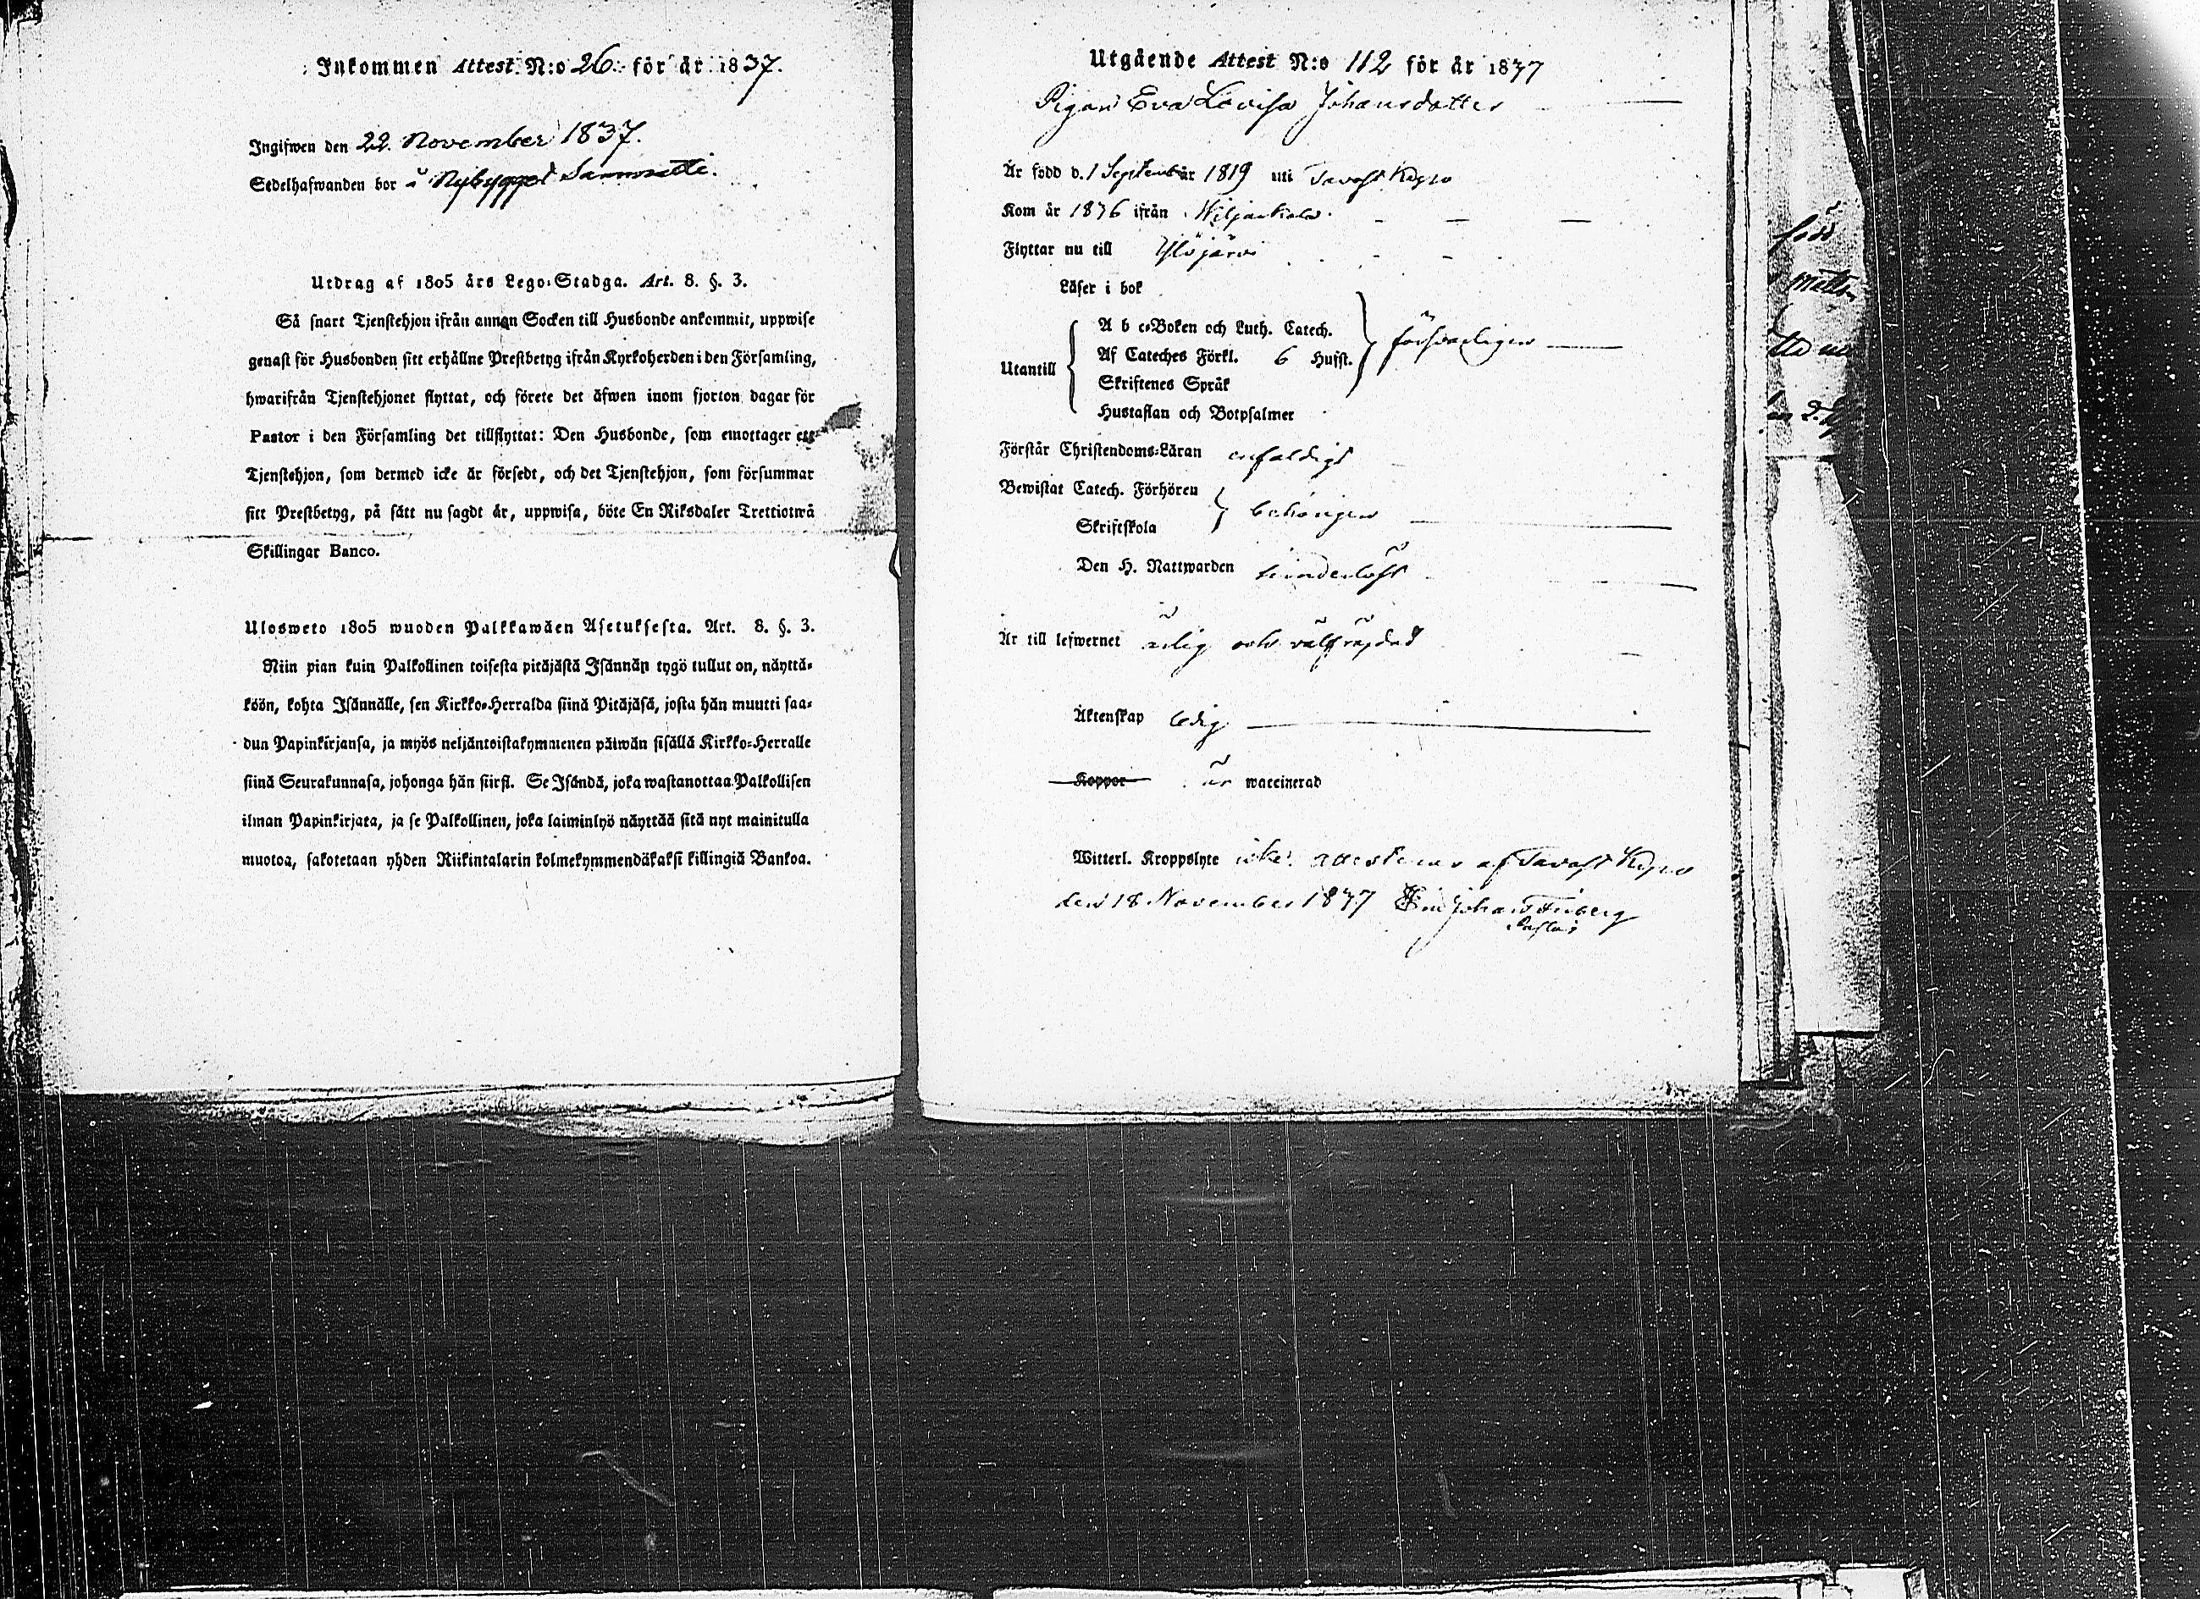 Inkommen Attest N:o 26. för år 1837.
Ingifwen den 22. November 1837.
Sedelhafwanden bor å Nybygget
Utdrag af 1805 års Lego-Stadga. Art. 8. §. 3.
Så snart Tjenstehjon ifrån annan Socken till Husbonde ankommit, uppwise
genast för Husbonden sitt erhållne Prestbetyg ifrån Kyrkoherden i den Församling,
hwarifrån Tjenstehjonet flyttat, och förete det äfwen inom fjorton dagar för
Pastor i den Församling det tillflyttat: Den Husbonde, som emottager ett
Tjenstehjon, som dermed icke är försedt, och det Tjenstehjon, som försummar
sitt Prestbetyg, på sätt nu sagdt är, uppwisa, böte En Riksdaler Trettiotwå
Skillingar Banco.
Ulosweto 1805 wuoden Palkkawäen Asetuksesta. Art. 8. §. 3.
Niin pian kuin Palkollinen toisesta pitäjästä Isännän tygö tullut on, näyttä-
köön, kohta Isännälle, sen Kirkko-Herralda siinä Pitäjäsä, josta hän muutti saa-
dun Papinkirjansa, ja myös neljäntoistakymmenen päiwän sisällä Kirkko-Herralle
siinä Seurakunnasa, johonga hän siirsi. Se Isändä, joka wastanottaa Palkollisen
ilman Papinkirjata, ja se Palkollinen, joka laiminlyö näyttää sitä nyt mainitulla
muotoa, sakotetaan yhden Riikintalarin kolmekymmendäkaksi killingiä Bankoa.
Utgående Attest N:o 112 för år 1837
Pigan Eva Lovisa Johansdotter
Är född d. 1 September 1819 uti Tavast Kyro
Kom år 1836 ifrån Wiljakkala
Flyttar nu till Ylöjärvi
Läser i bok
A b c-Boken och Luth. Catech.
Utantill Af Cateches Förkl. 6 Hufst. försvarligen
Skriftenes Språk
Hustaflan och Botpsalmer
Förstår Christendoms-Läran enfaldigt
Bewistat Catech. Förhören behörigen
Skriftskola
Den H. Nattwarden hinderlöst
Är till lefwernet ärlig och välfrejdad
Äktenskap ledig
Koppor är waccinerad
Witterl. Kroppslyte icke. attesteras af Tavast Kyro
den 18 November 1837 Johan
Pastor
född